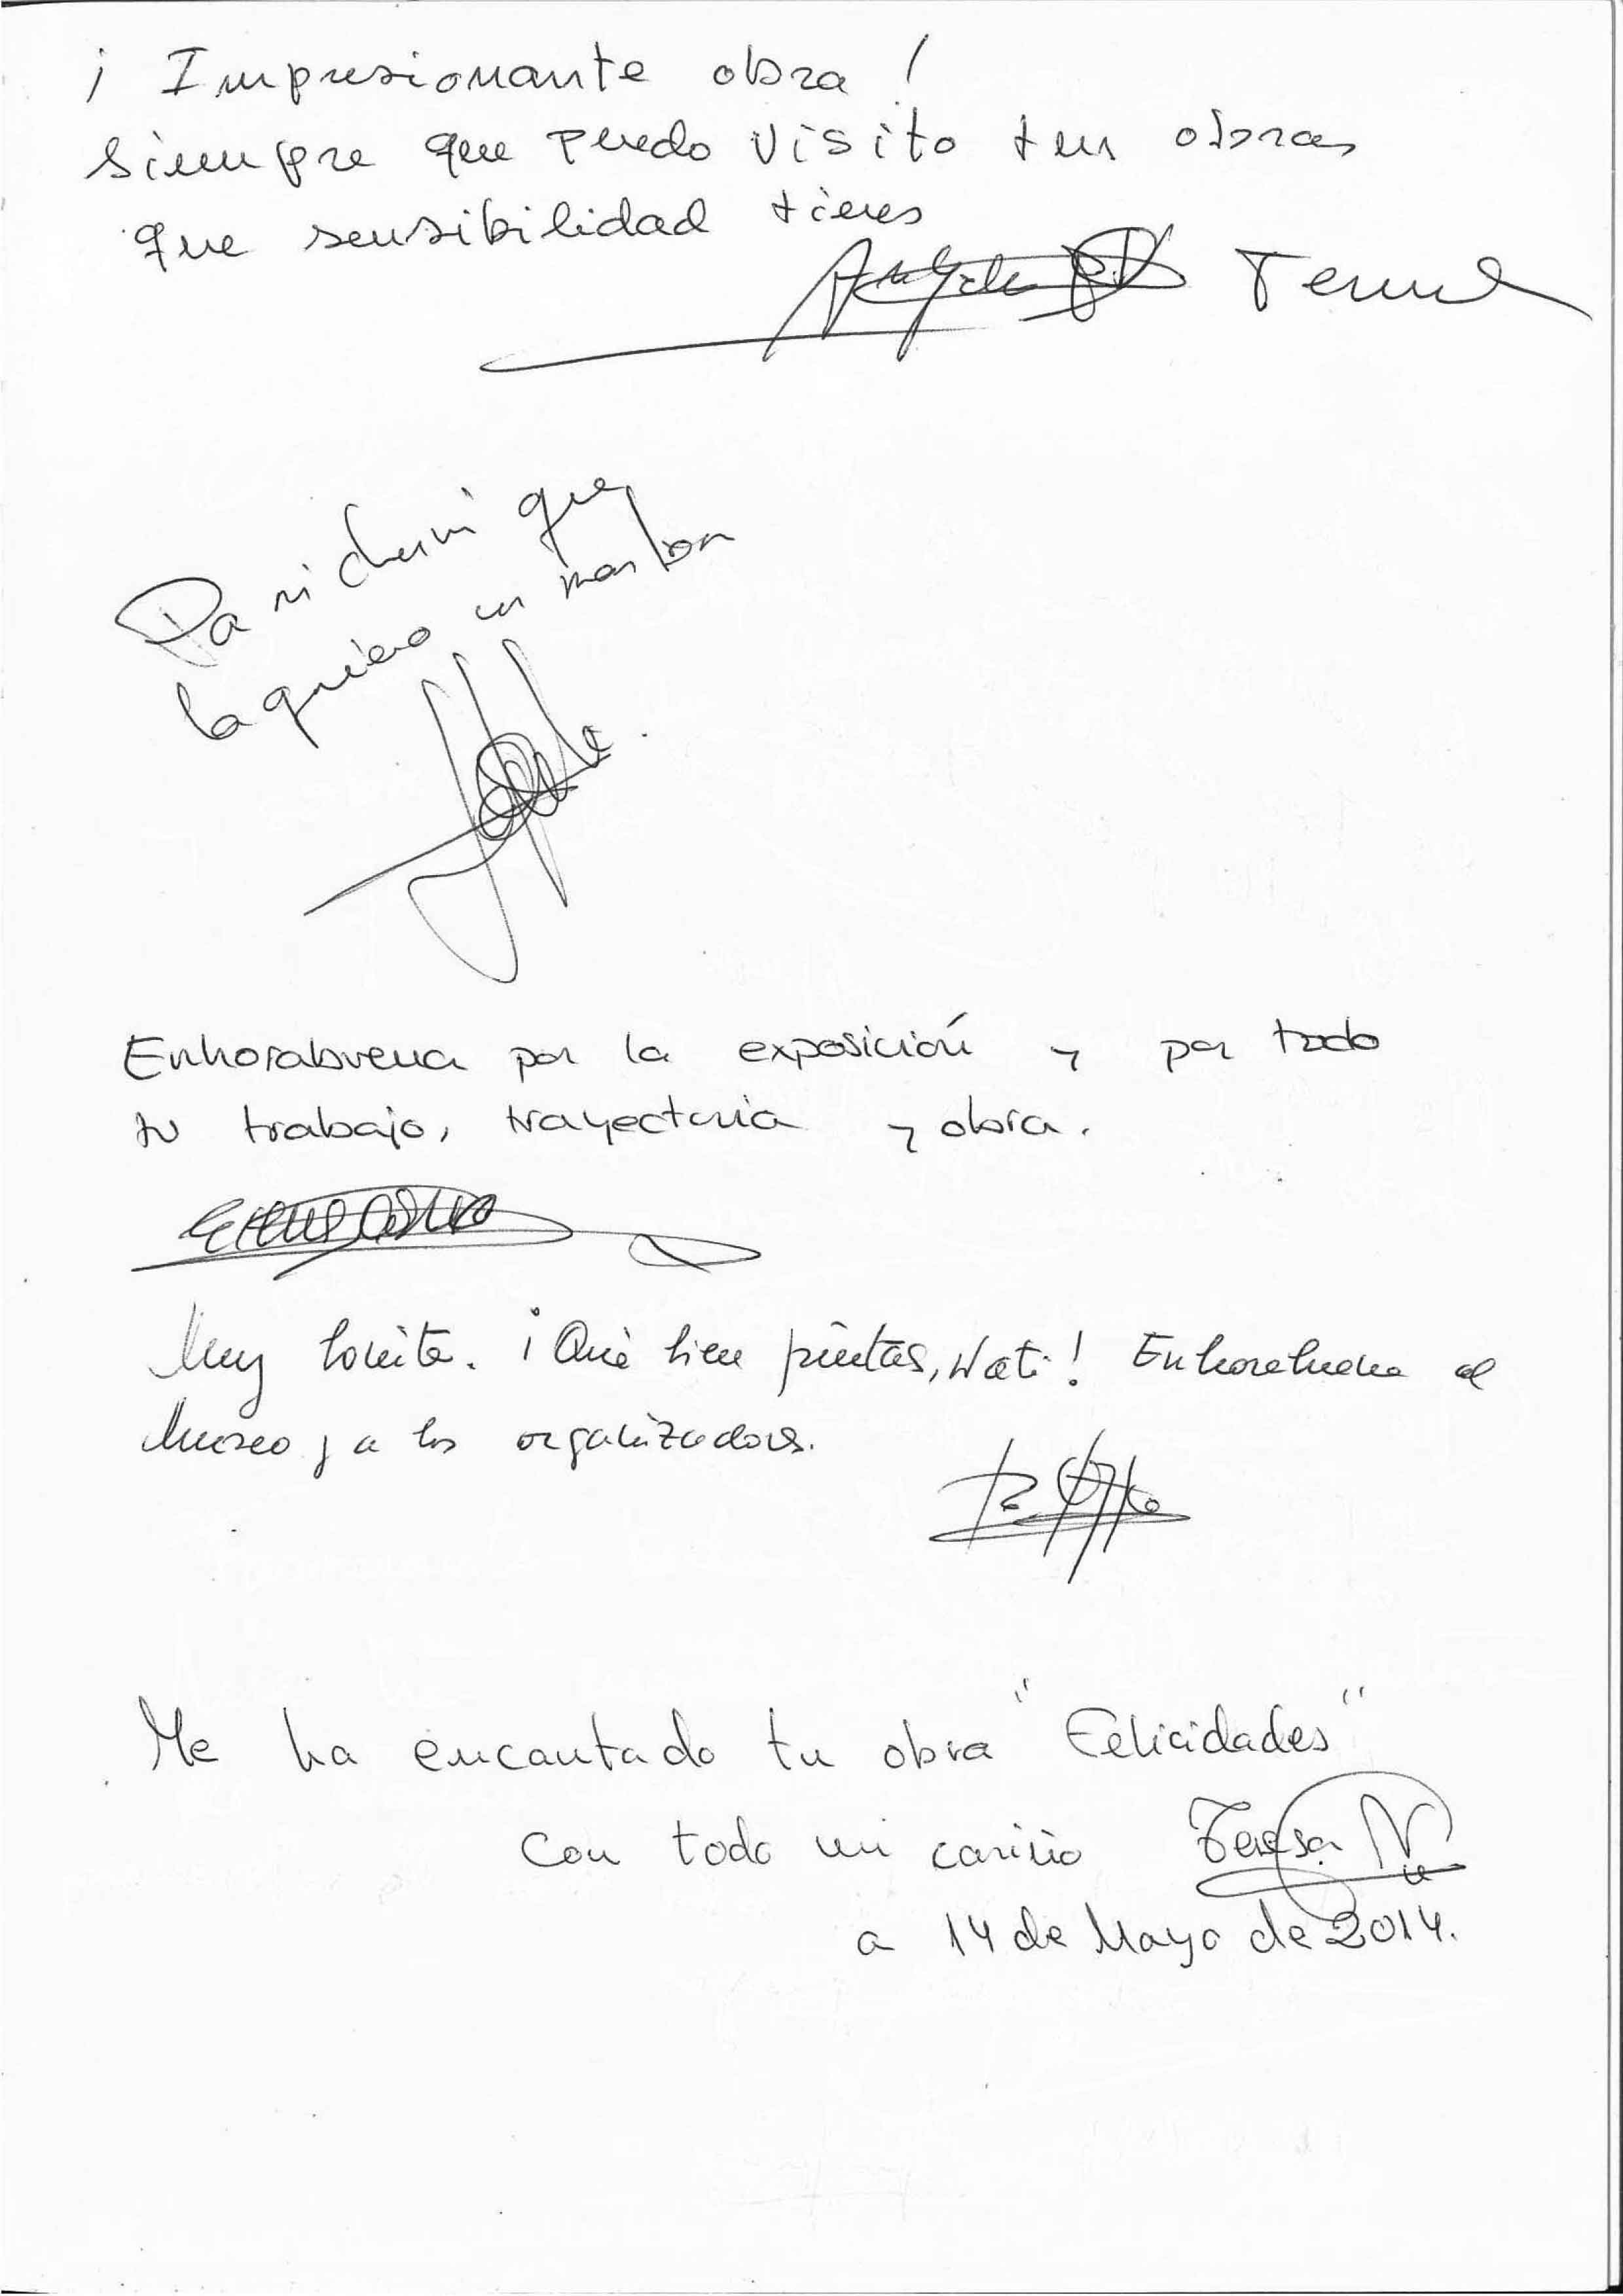 ¡ Impresionante obra !
siempre que puedo visito tus obras
que sensibilidad tienes
Teruel
que
la quiero un
Enhorabuena por la exposición y por todo
tu trabajo, trayectoria y obra.
Muy bonita. ¡Qué bien pintas, Nati! Enhorabuena al
Museo y a los organizadores.
Me ha encantado tu obra "Felicidades"
Con todo mi cariño Teresa N
a 14 de Mayo de 2014.